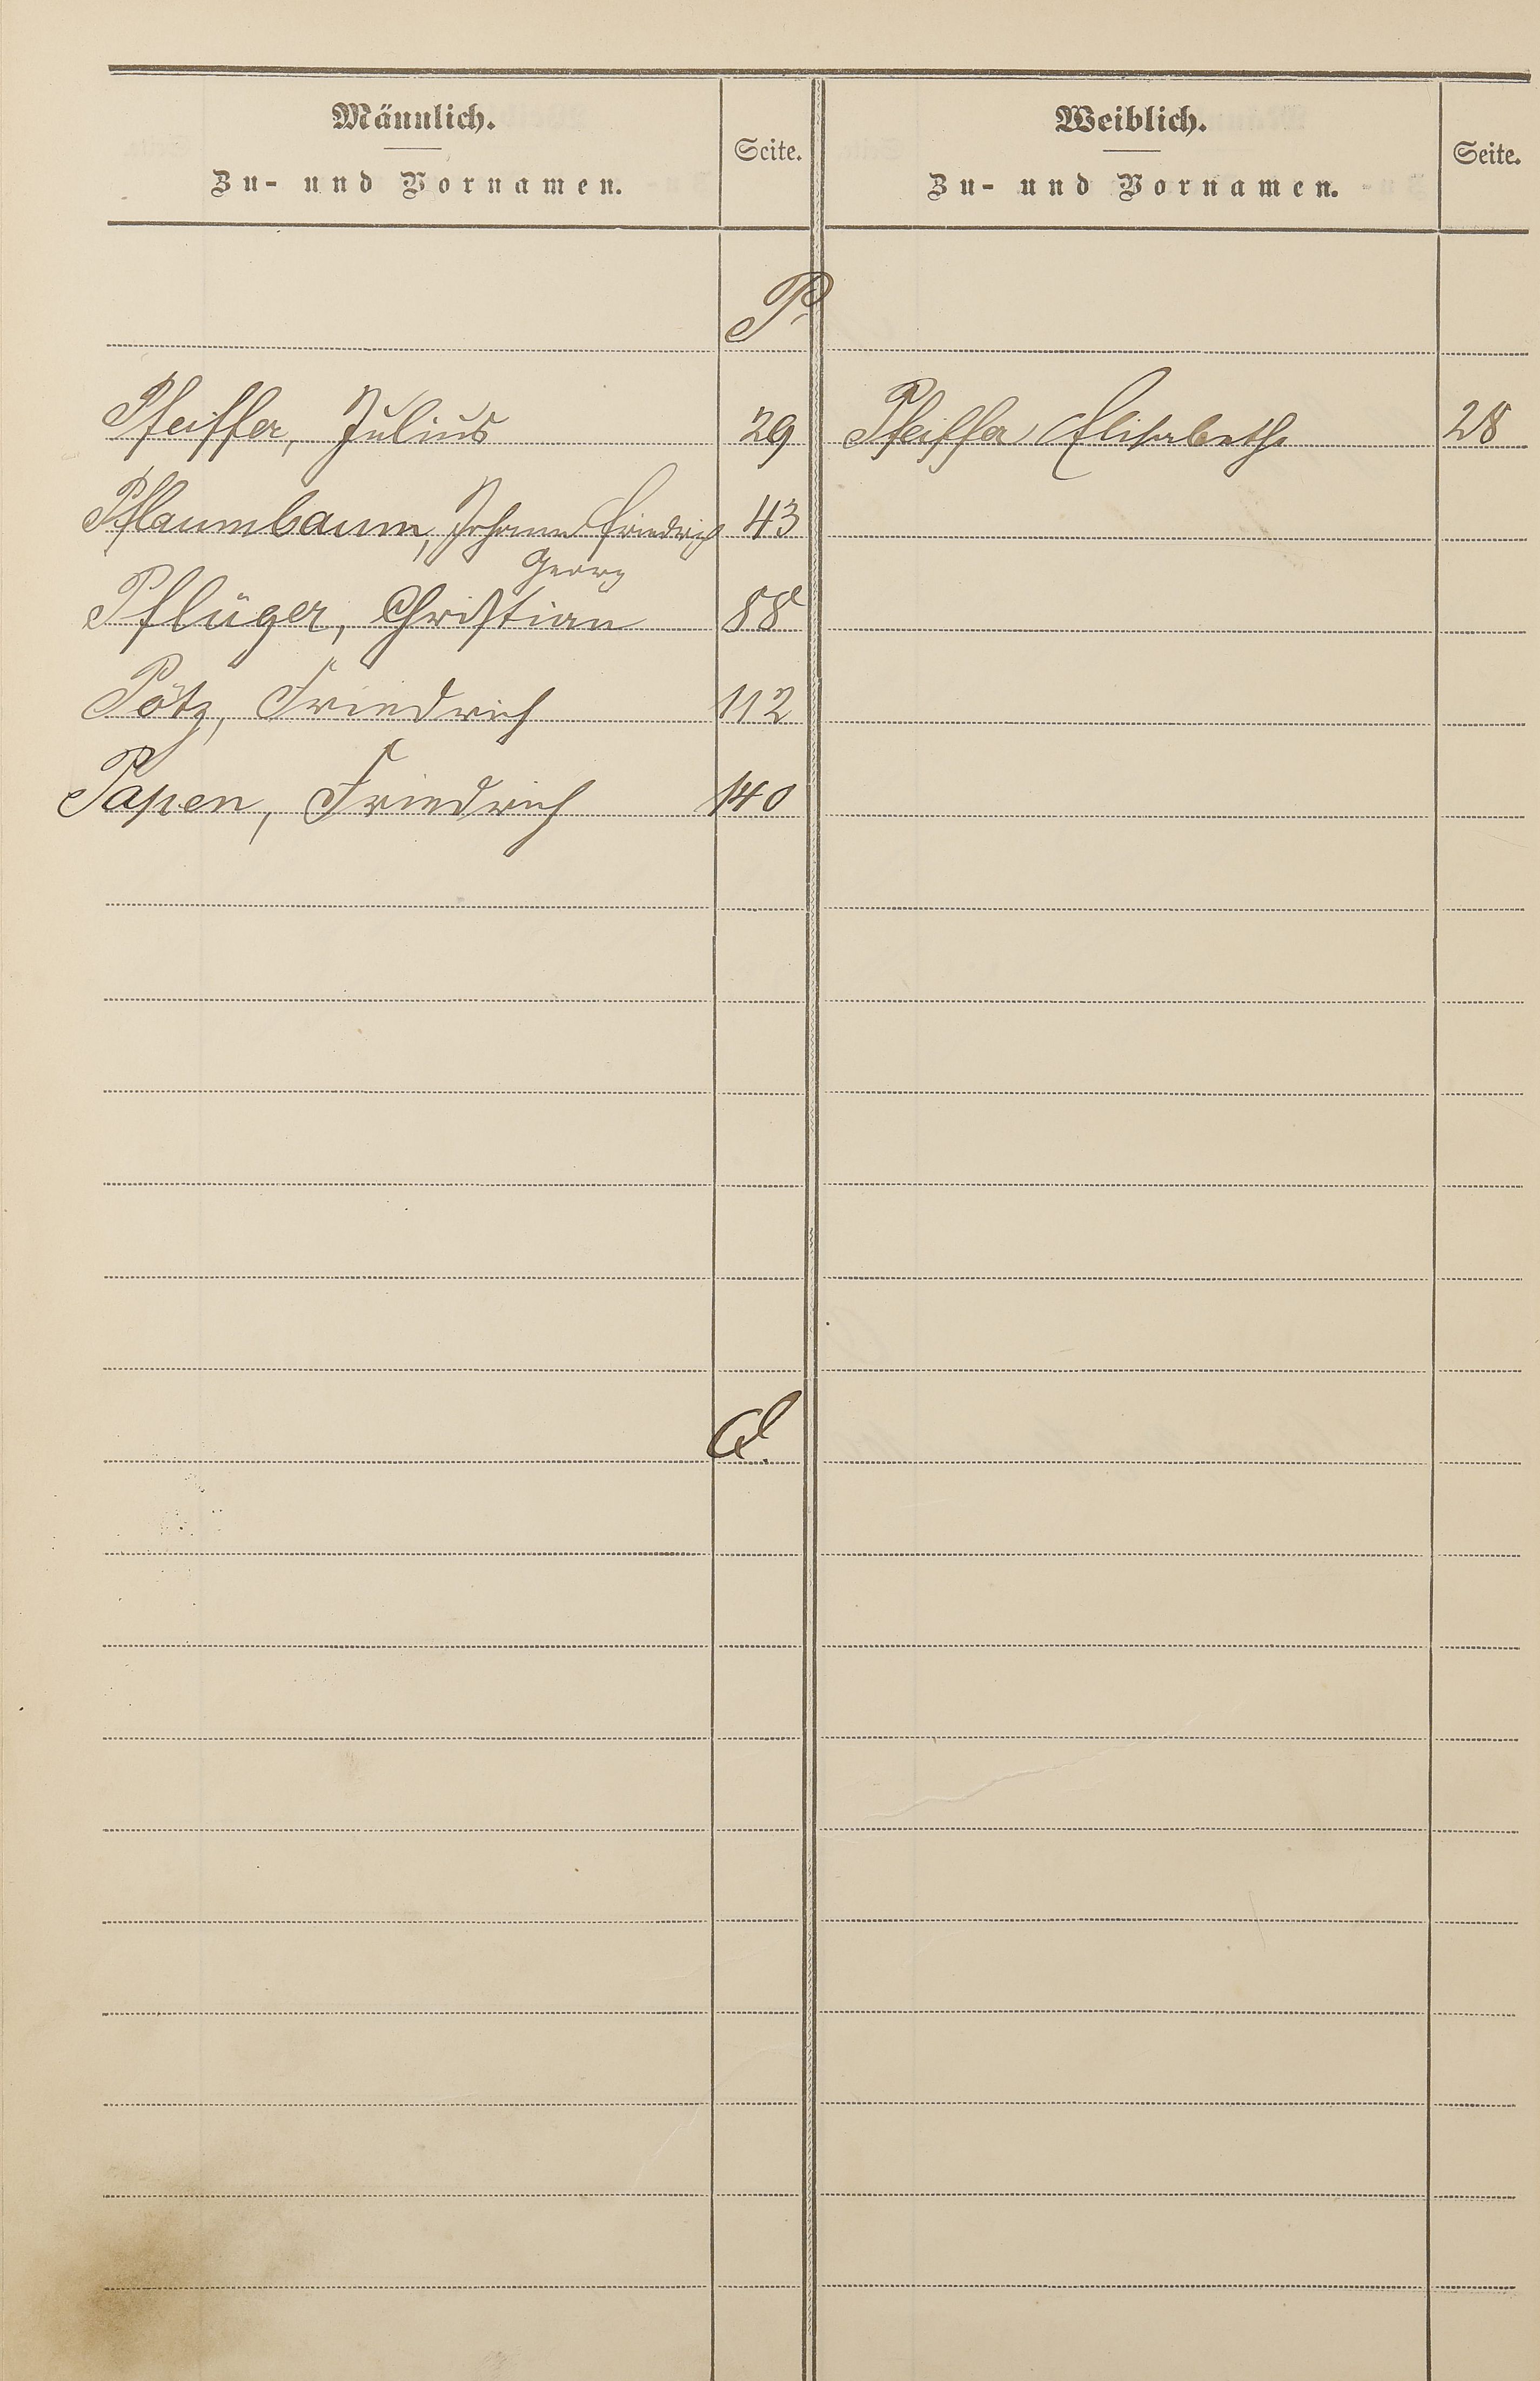 Männlich.
Zu- und Vornamen.
Seite.
Weiblich.
Zu- und Vornamen.
Seite.
P.
Pfeiffer, Julius 29 Pfeiffer Elisabeth 28
Pflaumbaum, Johann Friedrich 43
Georg
Pflüger, Christian 88
Pötz, Friedrich 112
Papen, Friedrich 140
Q.